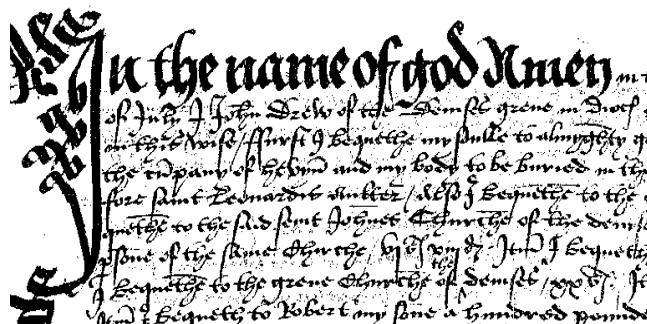 In the name of god Amen in t
of July I John Drew of the Demse grene in dioc
in this wise / ffurst I bequethe my saulle to almyghty g
the cũpany of hevyn and my body to be buried in the
fore saint Leonardis aulter / Also I bequethe to the
quethe to the said seint Johnes Churche of the demse
psone of the same Churche / vjs viijd Itm I bequeth
I bequethe to the grene Churche of the demse / xxs / It
Itm I bequeth to Robert my sone a hundred pounde